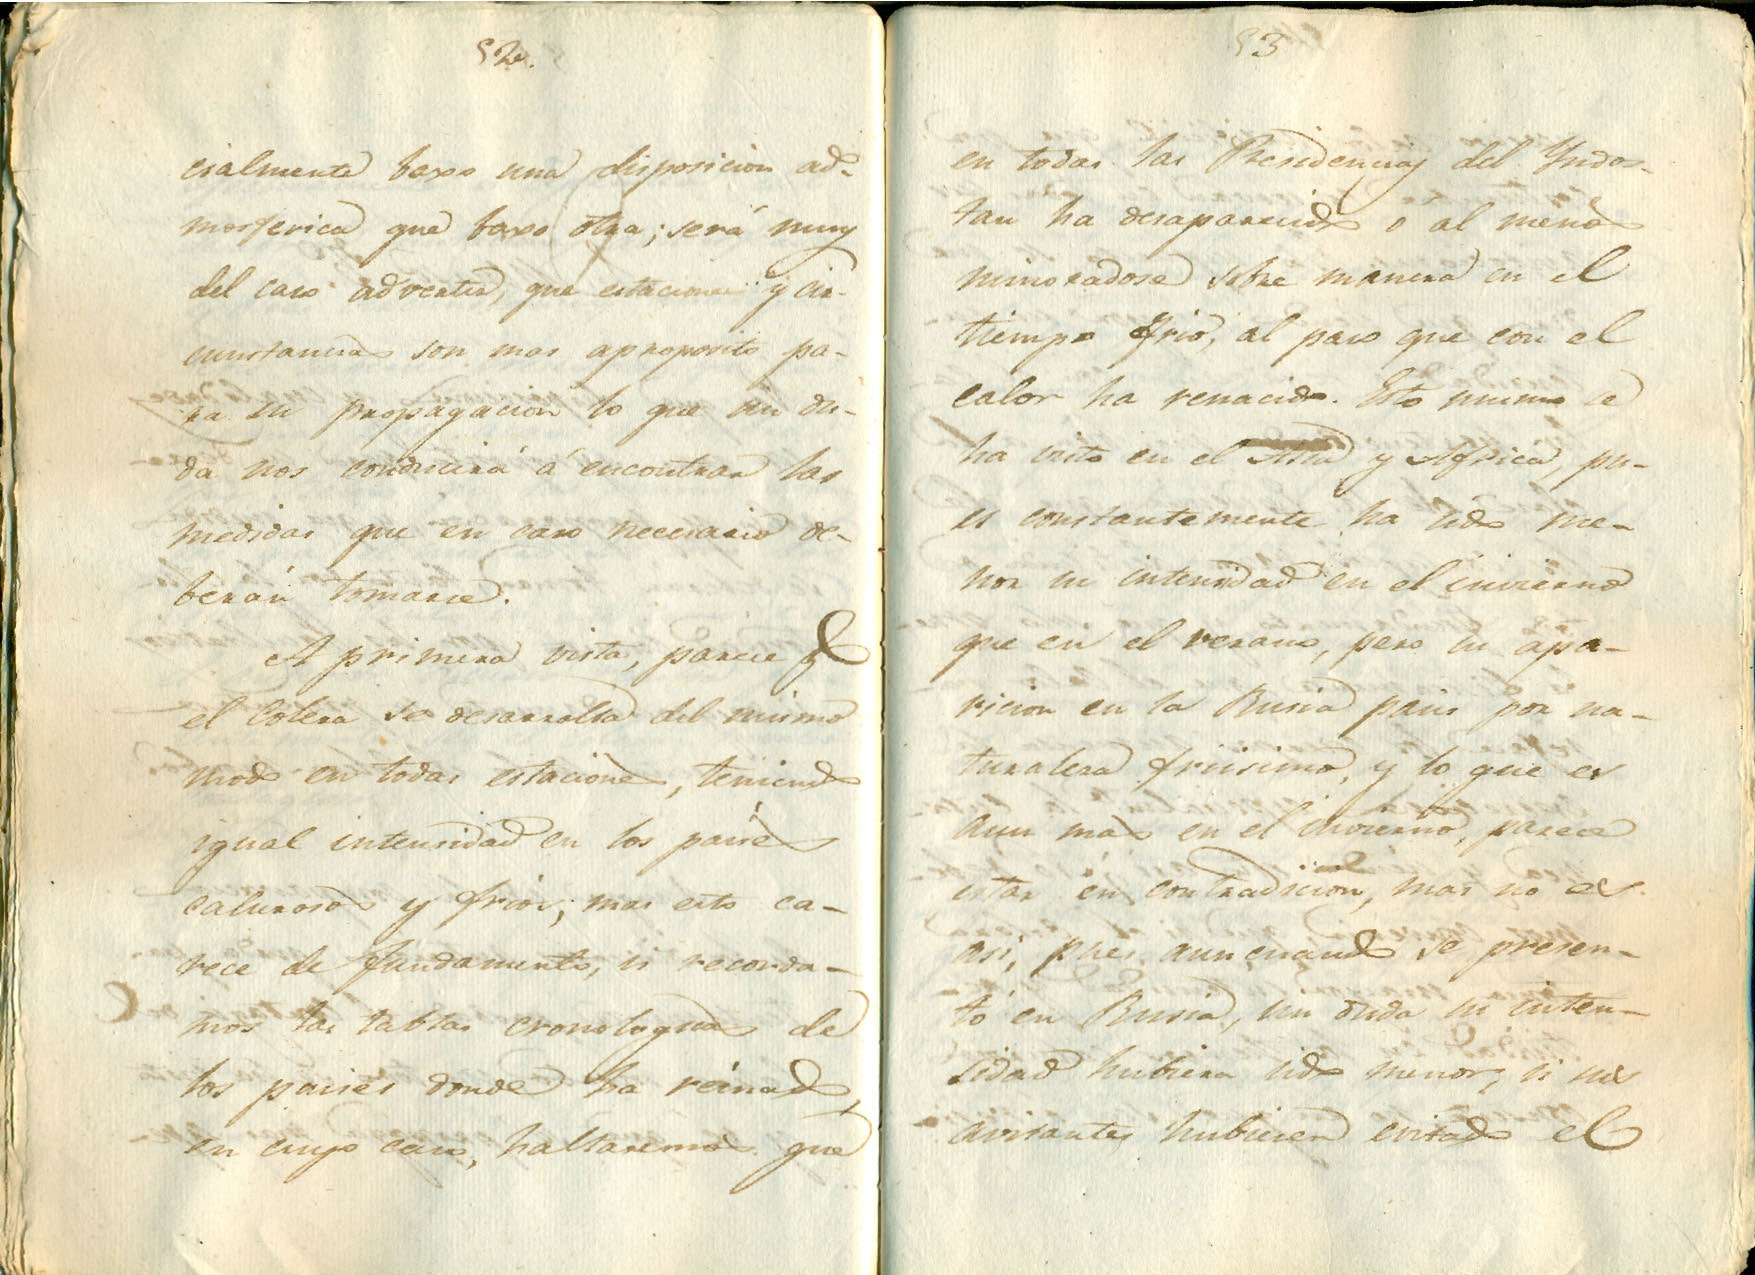 52.
cialmente baxo una disposicion ad-
mosferica que baxo otra; será muy
del caso advertir, que estaciones y cir-
cunstancias son mas aproposito pa-
ra su propagacion lo que sin du-
da nos conducirá á encontrar las
medidas que en caso necesario de-
berán tomarse.
A primera vista, parece q
el Colera se desarrolla del mismo
modo en todas estaciones, teniendo
igual intensidad en los paises
calurosos y frios; mas esto ca-
rece de fundamento, si recorda-
mos las tablas cronologicas de
los paises donde ha reinado,
en cuyo caso, hallaremos que
53
en todas las Residencias del Yndos-
tan ha desaparecido o al menos
minoradose sobre manera en el
tiempo frio, al paso que con el
calor ha renacido. Esto mismo se
ha visto en el Asia y Africa, pu-
es constantemente ha sido me-
nor su intensidad en el invierno
que en el verano, pero su apa-
ricion en la Rusia pais por na-
turaleza friisimo, y lo que es
aun mas en el invierno, parece
estar en contradicion, mas no es
asi, pues aun cuando se presen-
tó en Rusia, sin duda su inten-
sidad hubiera sido menor, si sus
avitantes hubiesen evitado el